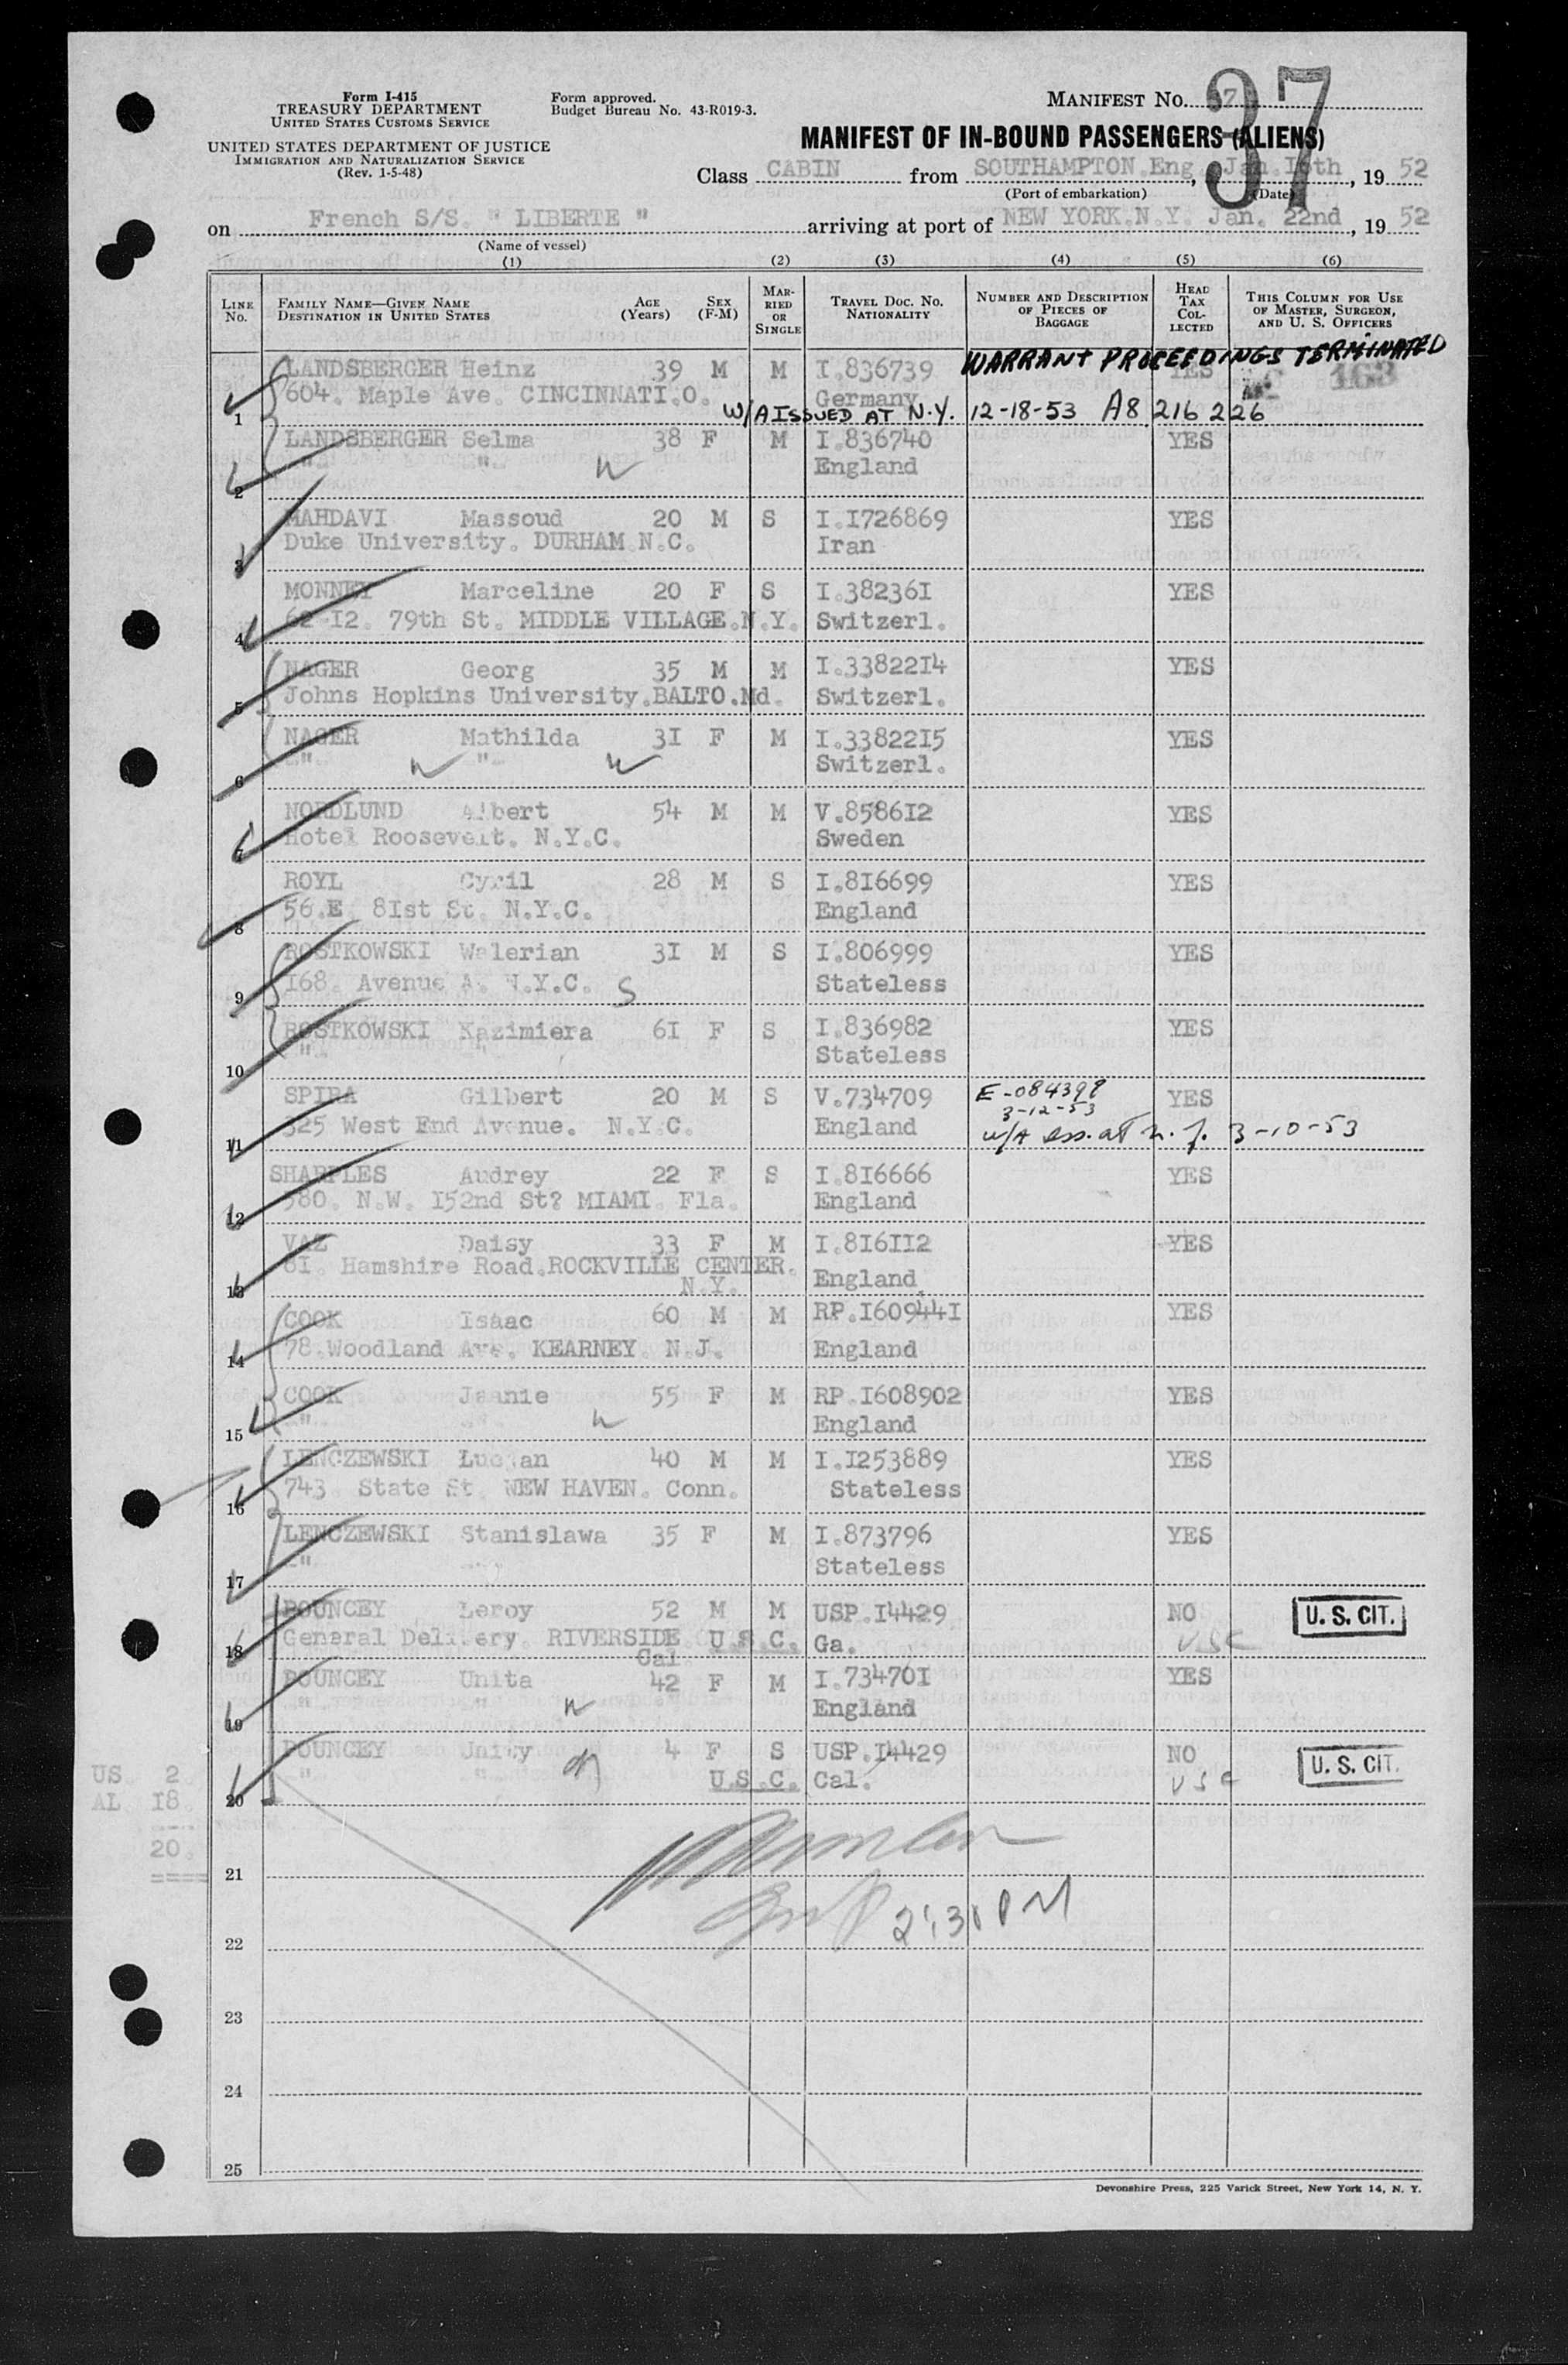 Form I-415
TREASURY DEPARTMENT
UNITED STATES CUSTOMS SERVICE
UNITED STATES DEPARTMENT OF JUSTICE
IMMIGRATION AND NATURALIZATION SERVICE
(Rev. 1-5-48)
Form approved.
Budget Bureau No. 43-R019-3.
MANIFEST No.
37
MANIFEST OF IN-BOUND PASSENGERS (ALIENS)
Class CABIN from SOUTHAMPTON.Eng. , Jan. , 19 52
(Port of embarkation) (Date)
on French S/S. " LIBERTE " arriving at port of NEW YORK.N.Y. Jan. 22nd , 19 52
(Name of vessel)
(1) (2) (3) (4) (5) (6)
LINE No. FAMILY NAME—GIVEN NAME DESTINATION IN UNITED STATES AGE (Years) SEX (F-M) MARRIED OR SINGLE TRAVEL DOC. NO. NATIONALITY NUMBER AND DESCRIPTION OF PIECES OF BAGGAGE HEAD TAX COLLECTED THIS COLUMN FOR USE OF MASTER, SURGEON, AND U. S. OFFICERS
WARRANT PROCEEDINGS TERMINATED
LANDSBERGER Heinz 39 M M I.836739 YES 163
1 604. Maple Ave. CINCINNATI.O. Germany
W/A ISSUED AT N.Y. 12-18-53 A8 216 226
LANDSBERGER Selma 38 F M I.836740 YES
2 " " England
MAHDAVI Massoud 20 M S I.I726869 YES
3 Duke University. DURHAM N.C. Iran
MONNEY Marceline 20 F S I.38236I YES
4 62-I2. 79th St. MIDDLE VILLAGE.N.Y. Switzerl.
NAGER Georg 35 M M I.33822I4 YES
5 Johns Hopkins University.BALTO.Md. Switzerl.
NAGER Mathilda 3I F M I.33822I5 YES
6 " " Switzerl.
NORDLUND Albert 54 M M V.8586I2 YES
7 Hotel Roosevelt. N.Y.C. Sweden
ROYL Cyril 28 M S I.8I6699 YES
8 56.E 8Ist St. N.Y.C. England
ROSTKOWSKI Walerian 3I M S I.806999 YES
9 I68. Avenue A. N.Y.C. S Stateless
ROSTKOWSKI Kazimiera 6I F S I.836982 YES
10 " " Stateless
SPIRA Gilbert 20 M S V.734709 E-084398 YES
3-12-53
11 325 West End Avenue. N.Y.C. England w/A iss. at N.Y. 3-10-53
SHARPLES Audrey 22 F S I.8I6666 YES
12 580. N.W. I52nd St? MIAMI. Fla. England
VAZ Daisy 33 F M I.8I6II2 YES
13 8I. Hamshire Road.ROCKVILLE CENTER. England
N.Y.
COOK Isaac 60 M M RP.I60944I YES
14 78.Woodland Ave. KEARNEY. N.J. England
COOK Jeanie 55 F M RP.I608902 YES
15 " " England
LENCZEWSKI Lucjan 40 M M I.I253889 YES
16 743. State St. NEW HAVEN. Conn. Stateless
LENCZEWSKI Stanislawa 35 F M I.873796 YES
17 " Stateless
POUNCEY Leroy 52 M M USP.I4429 NO U. S. CIT.
18 General Delivery. RIVERSIDE. U.S.C. Ga. USC
Cal
POUNCEY Unita 42 F M I.73470I YES
19 " " England
POUNCEY Unity 4 F S USP.I4429 NO U. S. CIT.
20 " " U.S.C. Cal. USC
US 2.
AL I8.
20.
21
2:30 PM
22
23
24
25
Devonshire Press, 225 Varick Street, New York 14, N. Y.